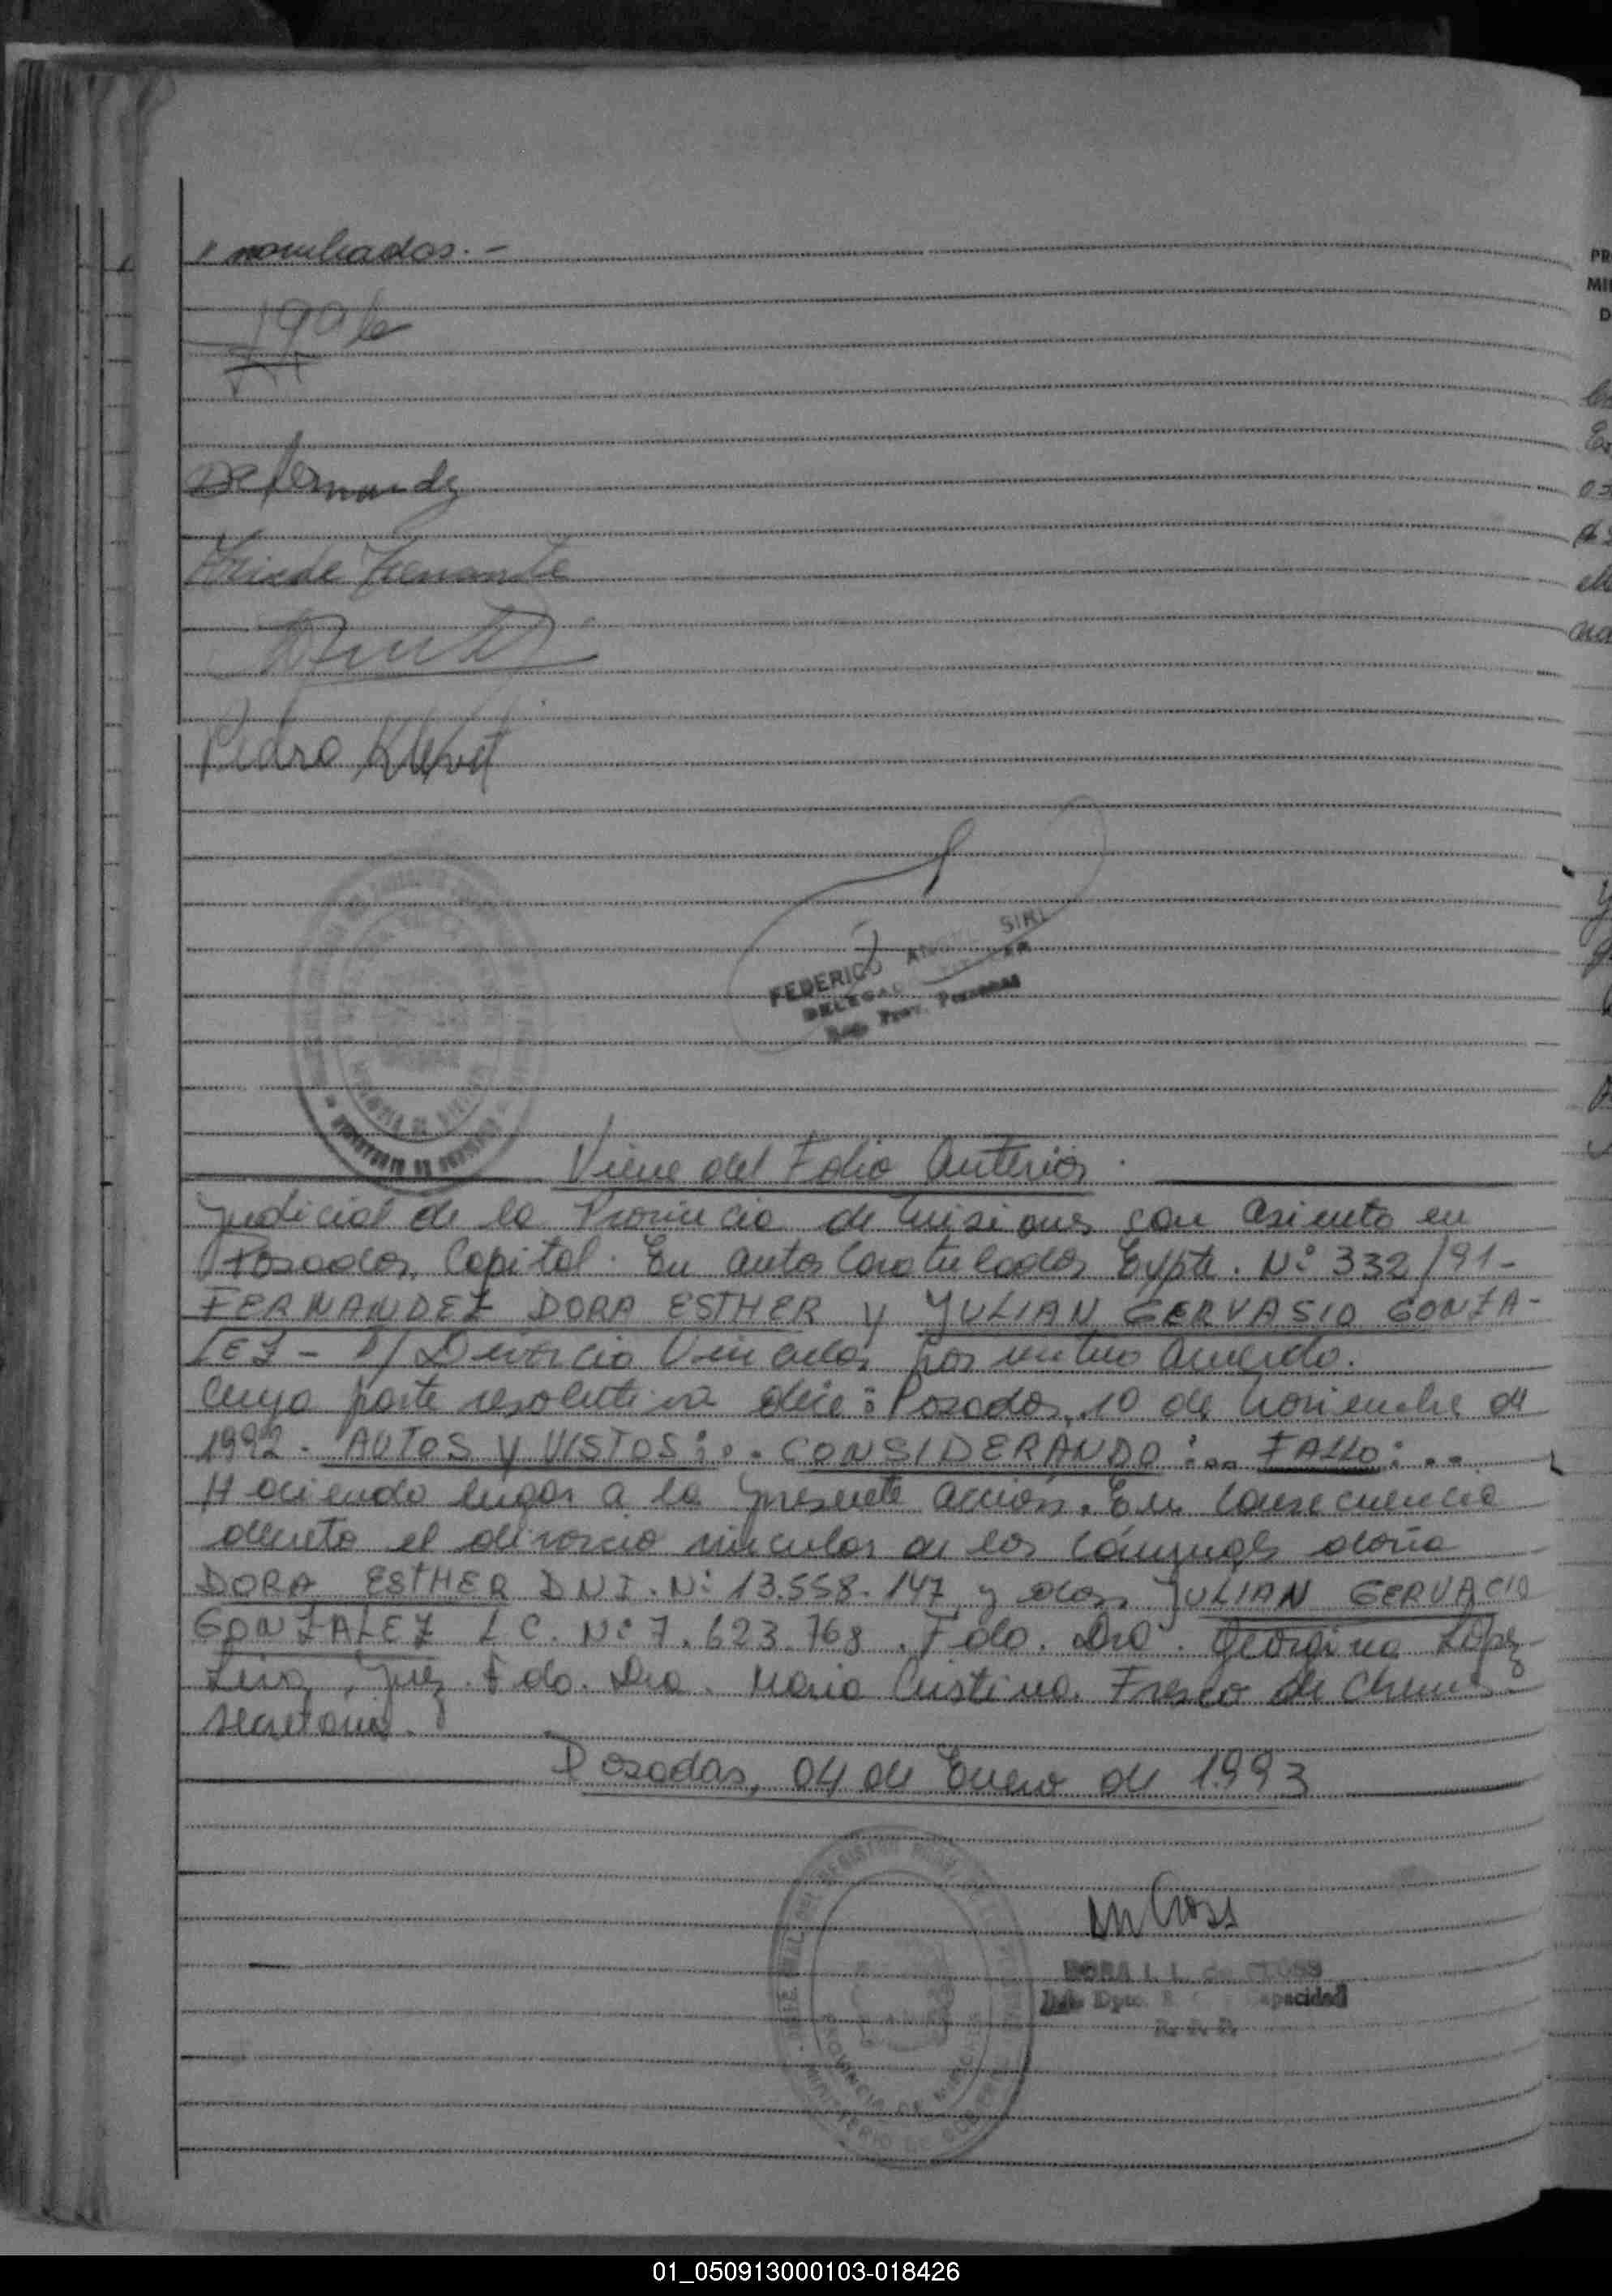 nombrados.-
Pedro
FEDERICO ANGEL SIRI
DELEGADO TITULAR
Reg. Prov. Personas
Viene del Folio Anterior.
Judicial de la Provincia de Misiones con asiento en
Posadas, Capital. En autos Caratulados Expte. Nº 332/91-
FERNANDEZ DORA ESTHER y JULIAN GERVASIO GONZA-
LEZ - S/ Divorcio Vincular por mutuo acuerdo.
Cuya parte resolutiva dice: Posadas, 10 de Noviembre de
1992. AUTOS Y VISTOS:.. CONSIDERANDO:... FALLO:...
Haciendo lugar a la presente acción. En consecuencia
decreto el divorcio vincular de los cónyuges doña
DORA ESTHER D.N.I. Nº 13.558.147 y don JULIAN GERVACIO
GONZALEZ L C. Nº 7.623.768. Fdo. Dra. Georgina López
Juez. Fdo. Dra. Maria Cristina Fresco de
secretaria.
Posadas, 04 de Enero de 1993
DORA I. L. de CLOSS
Dpto. Capacidad
R. P. P.
PROVINCIA DE MISIONES
PR
MI
D
01_050913000103-018426